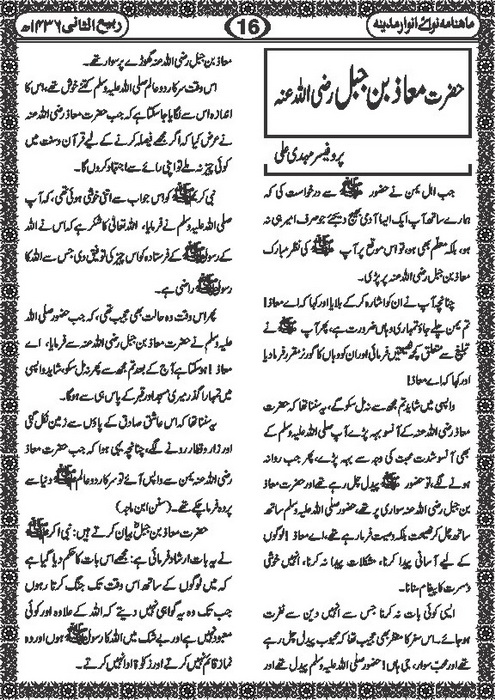 ماہنامہ نوائے انوار مدینہ
16
ربیع الثانی ۱۴۳۶ھ
حضرت معاذ بن جبل رضی اللہ عنہ
پروفیسر مہدی علی
جب اہل یمن نے حضور ﷺ سے درخواست کی کہ
ہمارے ساتھ آپ ایک ایسا آدمی بھیج دیجئے جو صرف امیر ہی نہ
ہو، بلکہ معلم بھی ہو، تو اس موقع پر آپ ﷺ کی نظر مبارک
معاذ بن جبل رضی اللہ عنہ پر پڑی۔
چنانچہ آپ نے ان کو اشارہ کر کے بلایا اور کہا کہ اے معاذ!
تم یمن چلے جاؤ تمہاری وہاں ضرورت ہے، پھر آپ ﷺ نے
تبلیغ سے متعلق کچھ نصیحتیں فرمائی اور ان کو وہاں کا گورنر مقرر فرما دیا
اور کہا کہ اے معاذ!
واپسی میں شاید تم مجھ سے نہ مل سکو گے، یہ سننا تھا کہ حضرت
معاذ رضی اللہ عنہ کے آنسو بہہ پڑے آپ صلی اللہ علیہ وسلم کے
بھی آنسو شدت محبت کی وجہ سے بہہ پڑے، پھر جب روانہ
ہونے لگے، تو حضور ﷺ پیدل چل رہے تھے اور حضرت معاذ
بن جبل رضی اللہ عنہ سواری پر تھے، حضور صلی اللہ علیہ وسلم ساتھ
ساتھ چل کر نصیحت بلکہ وصیت فرما رہے تھے، اے معاذ! لوگوں
کے لیے آسانی پیدا کرنا، مشکلات پیدا نہ کرنا، انہیں خوشی
و مسرت کا پیغام سنانا۔
ایسی کوئی بات نہ کرنا جس سے انہیں دین سے نفرت
ہو جائے۔ اس سفر کا منظر بھی عجیب تھا کہ محبوب پیدل چل رہے
تھے اور محب سوار، جی ہاں! حضور صلی اللہ علیہ وسلم پیدل تھے اور
معاذ بن جبل رضی اللہ عنہ گھوڑے پر سوار تھے۔
اس وقت سرکار دو عالم صلی اللہ علیہ وسلم کتنے خوش تھے، اس کا
اندازہ اس سے لگایا جا سکتا ہے کہ جب حضرت معاذ رضی اللہ عنہ
نے عرض کیا کہ اگر مجھے فیصلہ کرنے کے لیے قرآن و سنت میں
کوئی چیز نہ ملے تو اپنی رائے سے اجتہاد کروں گا۔
نبی کریم ﷺ کو اس جواب سے اتنی خوشی ہوئی تھی، کہ آپ
صلی اللہ علیہ وسلم نے فرمایا، اللہ تعالیٰ کا شکر ہے کہ اس نے اللہ
کے رسول ﷺ کے فرستادہ کو اس چیز کی توفیق دی، جس سے اللہ کا
رسول ﷺ راضی ہے۔
پھر اس وقت وہ حالت بھی عجیب تھی، کہ جب حضور صلی اللہ
علیہ وسلم نے حضرت معاذ بن جبل رضی اللہ عنہ سے فرمایا، اے
معاذ! ہو سکتا ہے آج کے بعد تم مجھ سے پھر نہ مل سکو، شاید واپسی
میں تمہارا گذر میری مسجد اور قبر کے پاس ہی سے ہو گا۔
یہ سننا تھا کہ اس عاشق صادق کے پاؤں سے زمین نکل گئی
اور زار و قطار رونے لگے، چنانچہ یہی ہوا کہ جب حضرت معاذ
رضی اللہ عنہ یمن سے واپس آئے تو سرکار دو عالم ﷺ دنیا سے
پردہ فرما چکے تھے۔ (سنن ابن ماجہ)
حضرت معاذ بن جبل بیان کرتے ہیں: نبی اکرم ﷺ
نے یہ بات ارشاد فرمائی ہے: مجھے اس بات کا حکم دیا گیا ہے
کہ میں لوگوں کے ساتھ اس وقت تک جنگ کرتا رہوں
جب تک وہ یہ گواہی نہیں دیتے کہ اللہ کے علاوہ اور کوئی
معبود نہیں ہے اور بے شک میں اللہ کا رسول ﷺ ہوں اور وہ
نماز قائم نہیں کرتے اور زکوٰۃ ادا نہیں کرتے۔